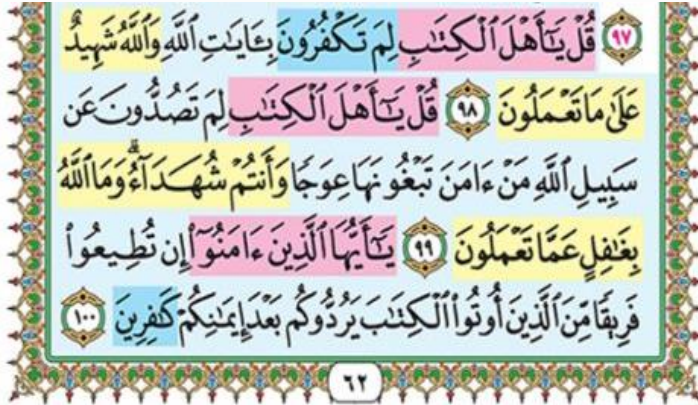 ٩٧ قُلْ يَٰٓأَهْلَ ٱلْكِتَٰبِ لِمَ تَكْفُرُونَ بِـَٔايَٰتِ ٱللَّهِ وَٱللَّهُ شَهِيدٌ
عَلَىٰ مَا تَعْمَلُونَ ٩٨ قُلْ يَٰٓأَهْلَ ٱلْكِتَٰبِ لِمَ تَصُدُّونَ عَن
سَبِيلِ ٱللَّهِ مَنْ ءَامَنَ تَبْغُونَهَا عِوَجًا وَأَنتُمْ شُهَدَآءُ ۗ وَمَا ٱللَّهُ
بِغَٰفِلٍ عَمَّا تَعْمَلُونَ ٩٩ يَٰٓأَيُّهَا ٱلَّذِينَ ءَامَنُوٓا۟ إِن تُطِيعُوا۟
فَرِيقًا مِّنَ ٱلَّذِينَ أُوتُوا۟ ٱلْكِتَٰبَ يَرُدُّوكُم بَعْدَ إِيمَٰنِكُمْ كَٰفِرِينَ ١٠٠
٦٢